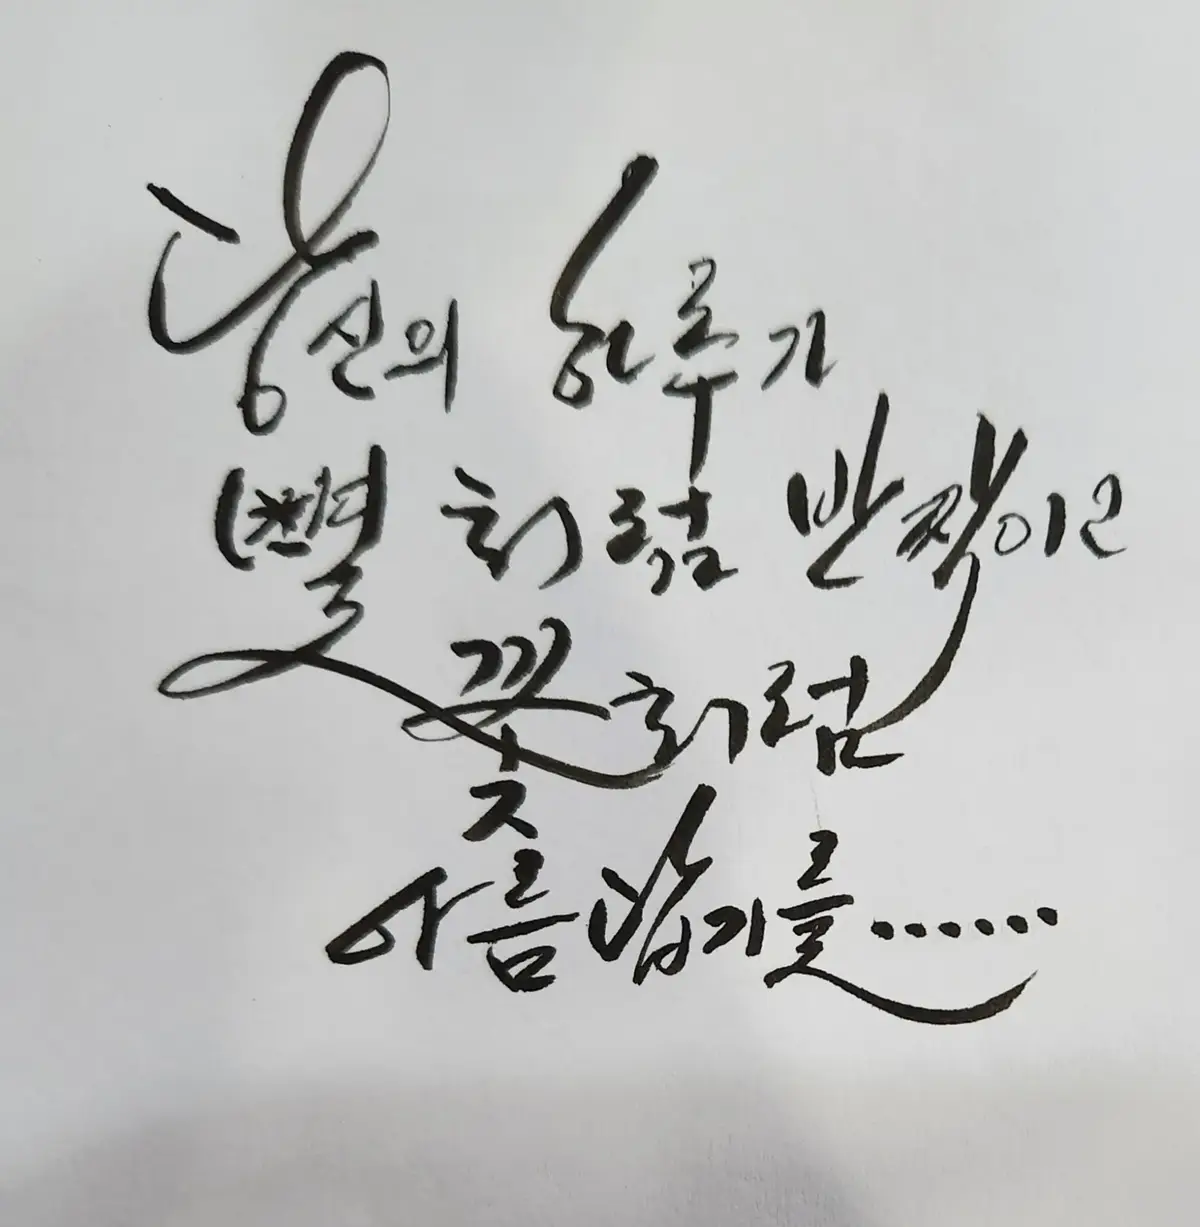 당신의 하루가
별처럼 반짝이고
꽃처럼
아름답기를......